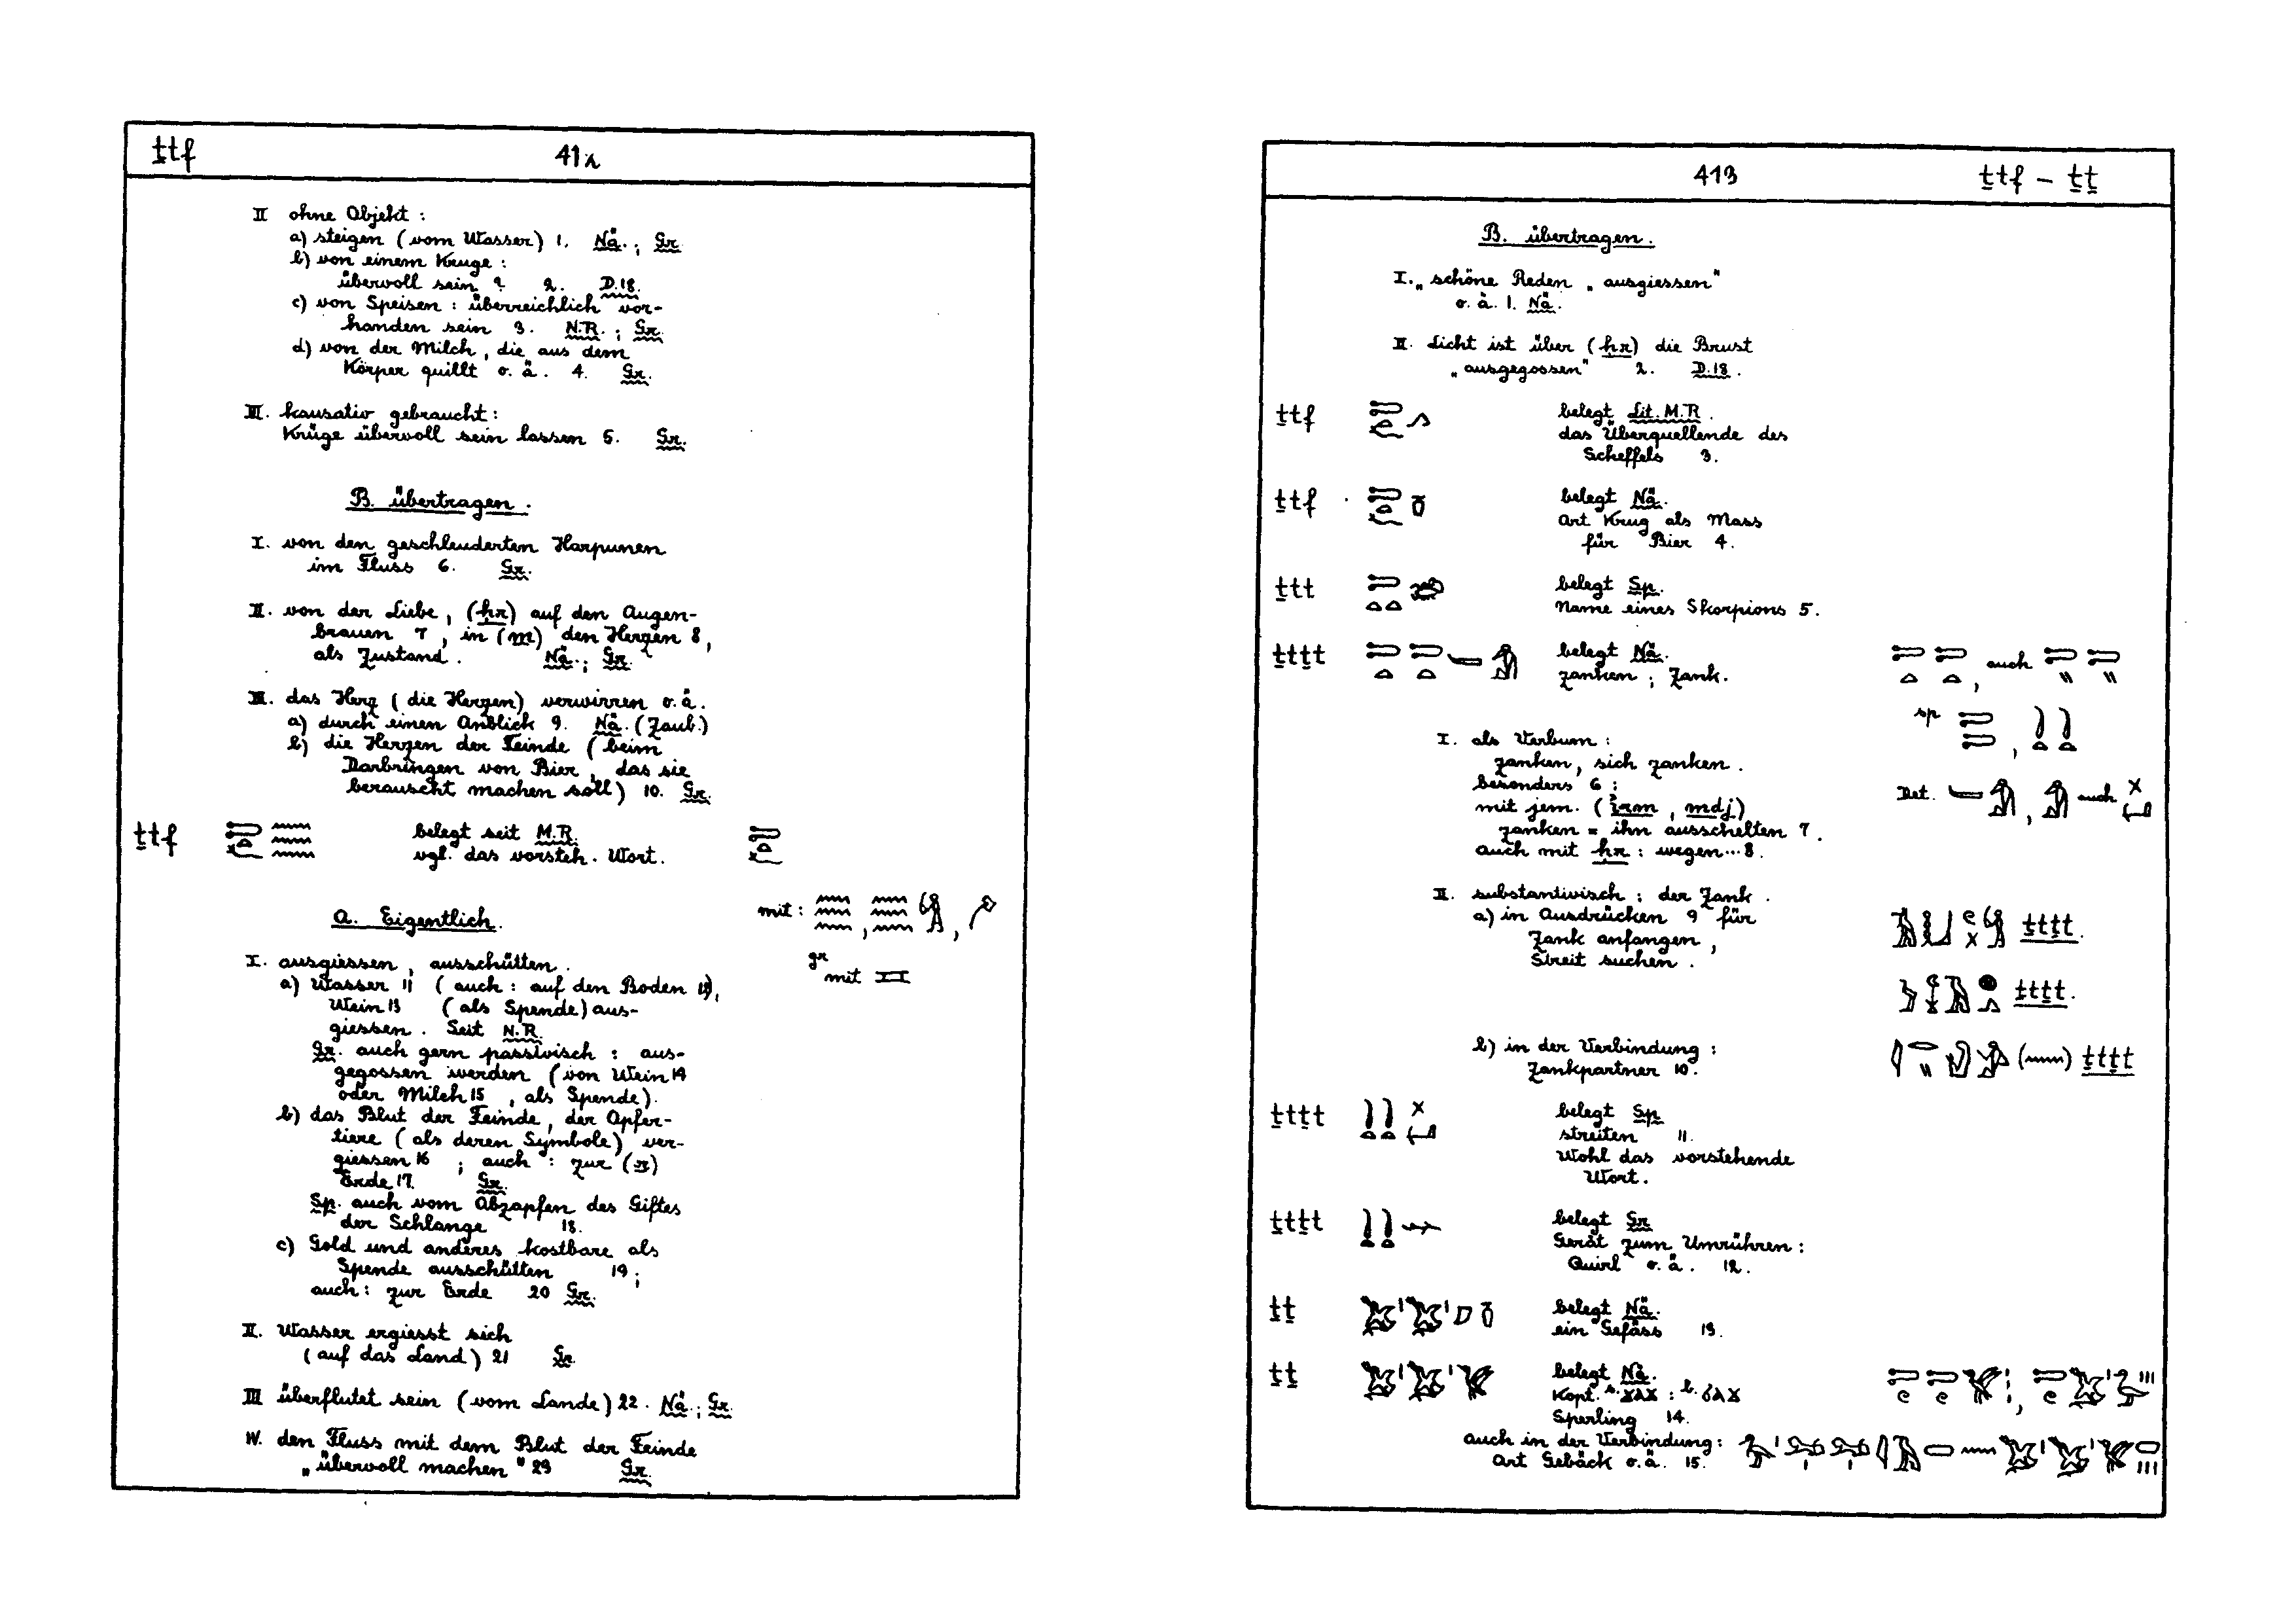 ṯtf 412
II ohne Objekt :
a) steigen (vom Wasser) 1. Nä. ; Gr.
b) von einem Kruge :
übervoll sein ? 2. D.18.
c) von Speisen : überreichlich vor-
handen sein 3. N.R. ; Gr.
d) von der Milch, die aus dem
Körper quillt o.ä. 4. Gr.
III. kausativ gebraucht :
Krüge übervoll sein lassen 5. Gr.
B. übertragen.
I. von den geschleuderten Harpunen
im Fluss 6. Gr.
II. von der Liebe, (ḥr) auf den Augen-
brauen 7, in (m) den Herzen 8,
als Zustand. Nä. ; Gr.
III. das Herz (die Herzen) verwirren o.ä.
a) durch einen Anblick 9. Nä. (Zaub.)
b) die Herzen der Feinde (beim
Darbringen von Bier, das sie
berauscht machen soll) 10. Gr.
ṯtf belegt seit M.R.
vgl. das vorsteh. Wort.
mit :
A. Eigentlich.
gr mit
I. ausgiessen, ausschütten.
a) Wasser 11 (auch : auf den Boden 12),
Wein 13 (als Spende) aus-
giessen. Seit N.R.
Gr. auch gern passivisch : aus-
gegossen werden (von Wein 14
oder Milch 15, als Spende).
b) das Blut der Feinde, der Opfer-
tiere (als deren Symbole) ver-
giessen 16 ; auch : zur (r)
Erde 17. Gr.
Sp. auch vom Abzapfen des Giftes
der Schlange 18.
c) Gold und anderes Kostbare als
Spende ausschütten 19 ;
auch : zur Erde 20 Gr.
II. Wasser ergiesst sich
(auf das Land) 21 Gr.
III überflutet sein (vom Lande) 22. Nä. ; Gr.
IV. den Fluss mit dem Blut der Feinde
„übervoll machen" 23 Gr.
413 ṯtf – ṯṯ
B. übertragen.
I. „schöne Reden „ausgiessen"
o.ä. 1. Nä.
II. Licht ist über (ḥr) die Brust
„ausgegossen" 2. D.18.
ṯtf belegt Lit. M.R.
das Überquellende des
Scheffels 3.
ṯtf belegt Nä.
Art Krug als Mass
für Bier 4.
ṯtt belegt Sp.
Name eines Skorpions 5.
ṯtṯt belegt Nä. , auch
zanken ; Zank.
sp ,
I. als Verbum :
zanken, sich zanken.
besonders 6 : Det. , auch
mit jem. (ỉrm, mdj)
zanken = ihn ausschelten 7.
auch mit ḥr : wegen... 8.
II. substantivisch : der Zank.
a) in Ausdrücken 9 für ṯtṯt.
Zank anfangen,
Streit suchen.
ṯtṯt.
b) in der Verbindung : ṯtṯt
Zankpartner 10.
ṯtṯt belegt Sp
streiten 11.
Wohl das vorstehende
Wort.
ṯtṯt belegt Gr
Gerät zum Umrühren :
Quirl o.ä. 12.
ṯṯ belegt Nä.
ein Gefäss 13.
ṯṯ belegt Nä.
Kopt. s. ϫⲁϫ : b. ϭⲁϫ
Sperling 14.
auch in der Verbindung :
Art Gebäck o.ä. 15.